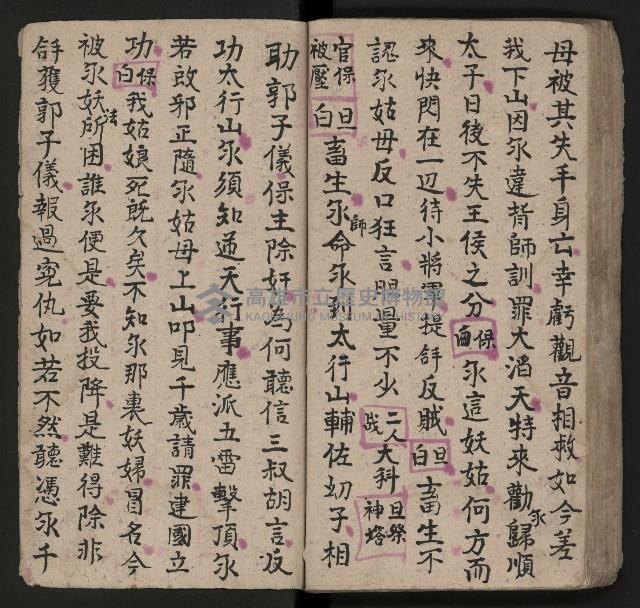 母被其失手身亡幸虧觀音相救如今差
我下山因尔違背師訓罪大滔天特來勸尔歸順
太子日後不失王侯之分保白尔這妖姑何方而
來快閃在一辺待小將擒反賊旦白畜生不
認尔姑母反口狂言胆量不少二人战大科旦祭神塔
官保被壓旦白畜生尔師命尔到太行山輔佐幼子相
助郭子儀保主除奸為何聽信三叔胡言反
功太行山尔須知逆天行事應派五雷擊頂尔
若改邪正隨尔姑母上山叩見千歲請罪建國立
功保白我姑娘死旣久矣不知尔那裏妖婦冒名今
被尔妖法所困誰尔便是要我投降是難得除非
獲郭子儀報過寃仇如若不然聽憑尔千
高雄市立歷史博物館
KAOHSIUNG MUSEUM OF HISTORY